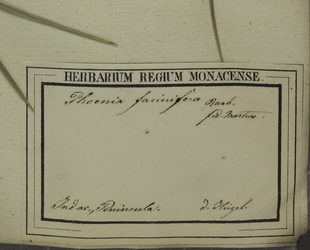 HERBARIUM REGIUM MONACENSE.
Phoenix farinifera Roxb.
fid. Martius.
Ind. or., Peninsula. d. Hügel.